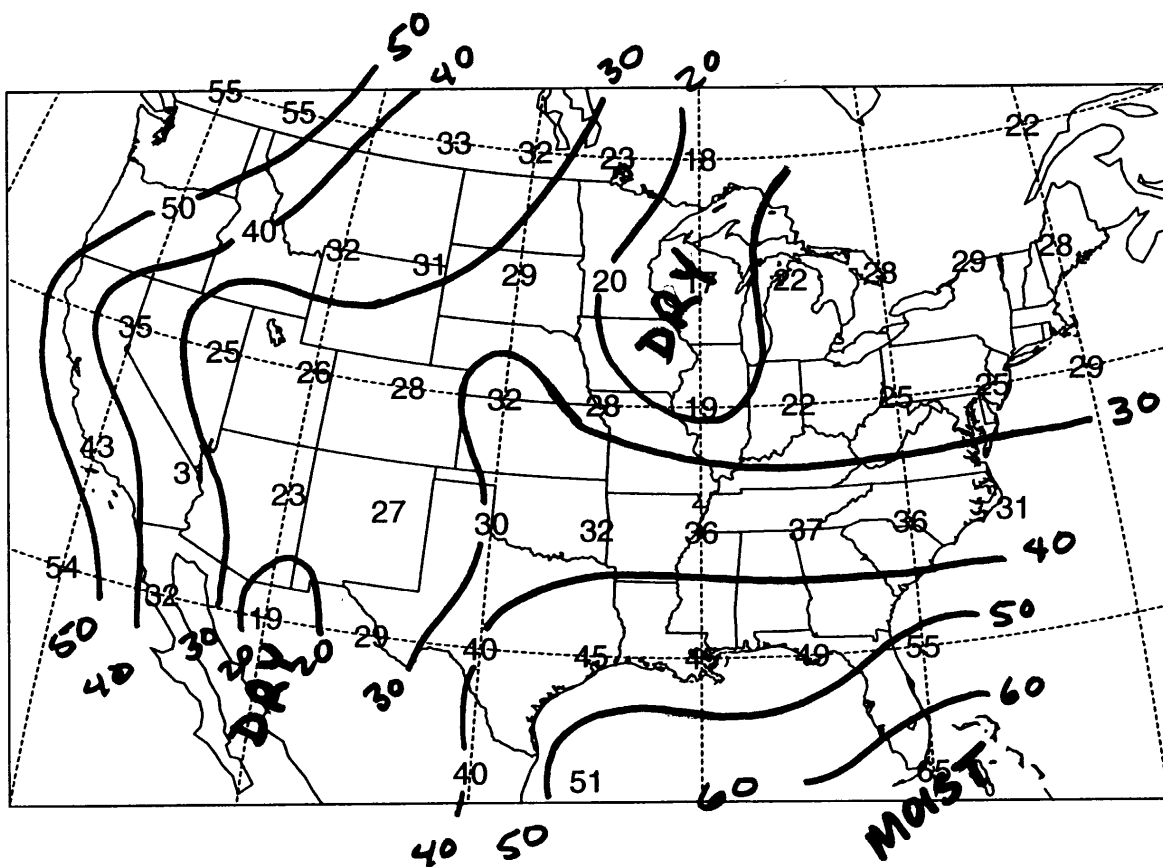 50
40
30
20
55
55
33
32
23
18
22
50
40
32
31
29
20
DRY
22
28
29
28
35
25
26
28
32
28
19
22
25
25
29
30
43
23
27
30
32
36
37
36
31
40
54
32
19
29
40
45
49
55
50
50
40
30
20
DRY
20
30
60
40
51
60
65
MOIST
40
50